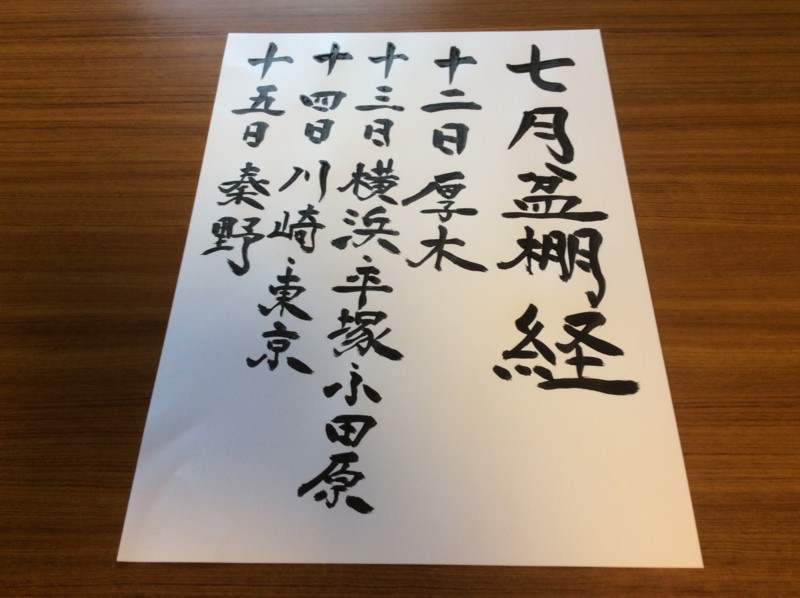 七月盆棚経
十二日厚木
十三日横浜・平塚・小田原
十四日川崎・東京
十五日秦野